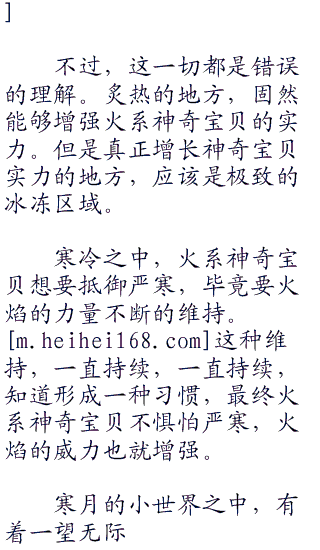 ]
不过，这一切都是错误
的理解。炙热的地方，固然
能够增强火系神奇宝贝的实
力。但是真正增长神奇宝贝
实力的地方，应该是极致的
冰冻区域。
寒冷之中，火系神奇宝
贝想要抵御严寒，毕竟要火
焰的力量不断的维持。
[m.heihei168.com]这种维
持，一直持续，一直持续，
知道形成一种习惯，最终火
系神奇宝贝不惧怕严寒，火
焰的威力也就增强。
寒月的小世界之中，有
着一望无际